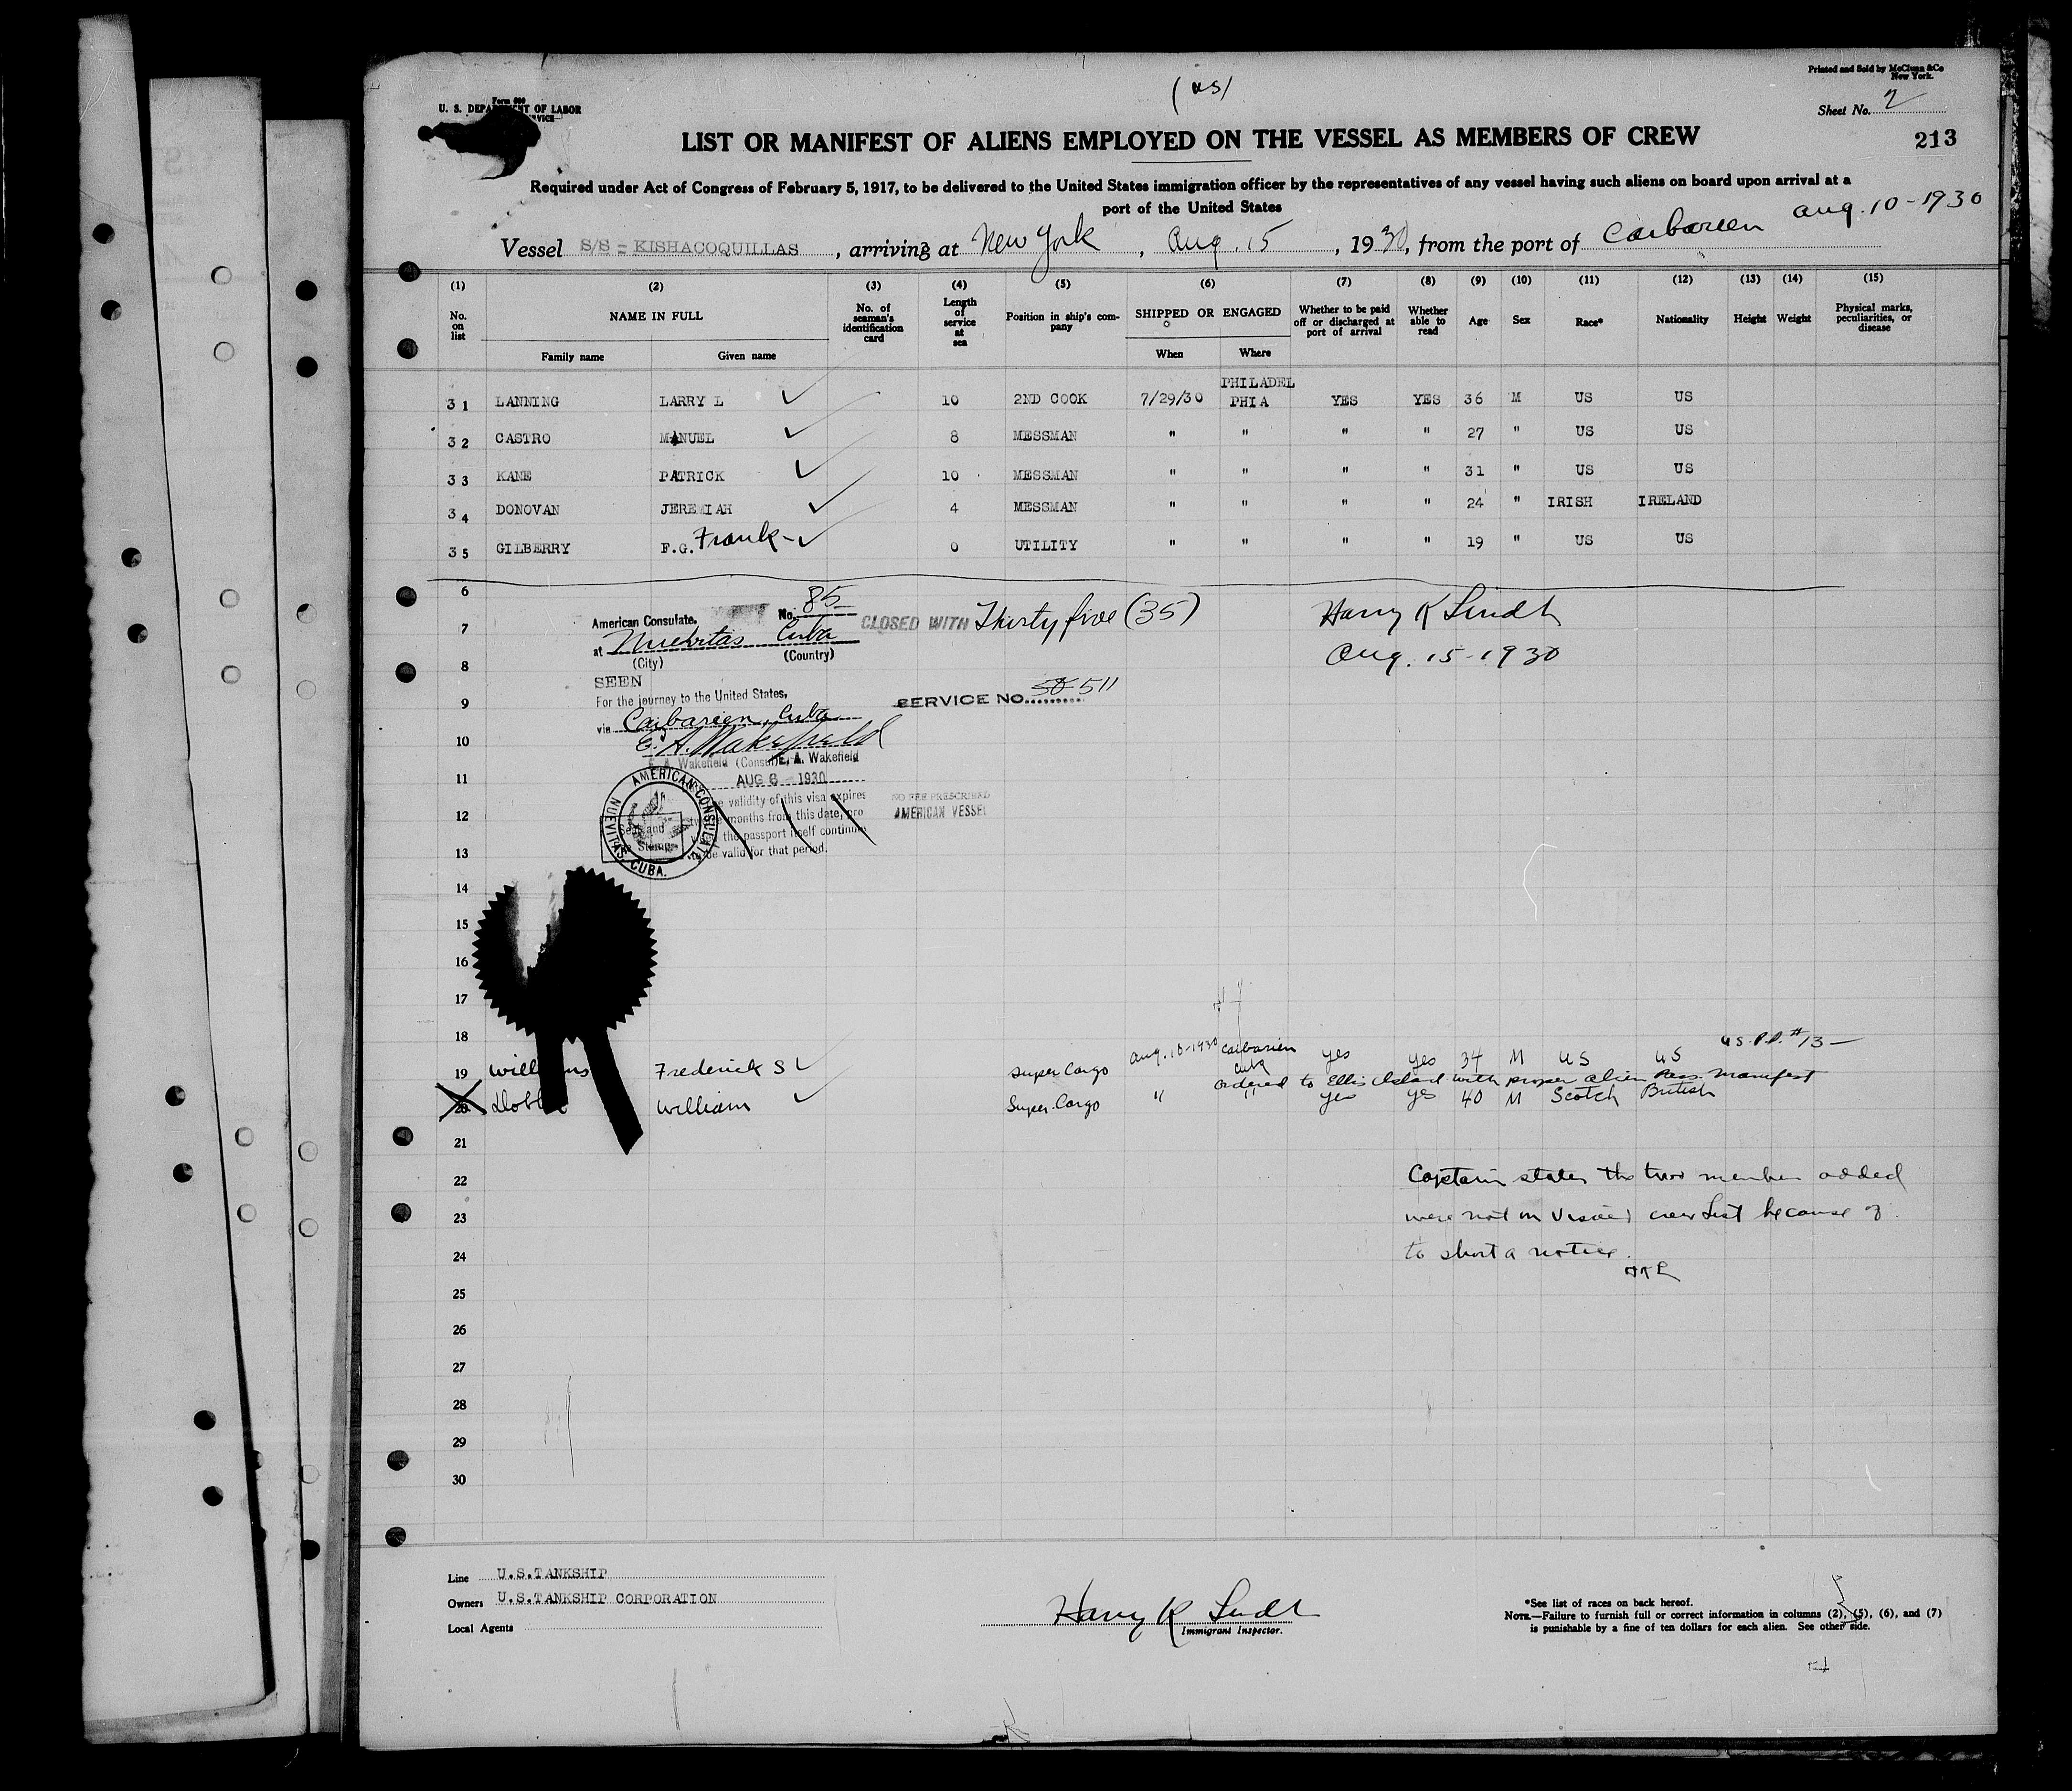 Printed and Sold by McClunn & Co
New York.
Form 606
U. S. DEPARTMENT OF LABOR
(US)
Sheet No. 2
LIST OR MANIFEST OF ALIENS EMPLOYED ON THE VESSEL AS MEMBERS OF CREW
213
Required under Act of Congress of February 5, 1917, to be delivered to the United States immigration officer by the representatives of any vessel having such aliens on board upon arrival at a
port of the United States
Aug. 10-1930
Vessel S/S - KISHACOQUILLAS, arriving at New York, Aug. 15, 1930, from the port of Caibarien
(1) (2) (3) (4) (5) (6) (7) (8) (9) (10) (11) (12) (13) (14) (15)
No. on list NAME IN FULL No. of seaman's identification card Length of service at sea Position in ship's company SHIPPED OR ENGAGED Whether to be paid off or discharged at port of arrival Whether able to read Age Sex Race* Nationality Height Weight Physical marks, peculiarities, or disease
Family name Given name When Where
31 LANNING LARRY L 10 2ND COOK 7/29/30 PHILADELPHIA YES YES 36 M US US
32 CASTRO MANUEL 8 MESSMAN " " " " 27 " US US
33 KANE PATRICK 10 MESSMAN " " " " 31 " US US
34 DONOVAN JEREMIAH 4 MESSMAN " " " " 24 " IRISH IRELAND
35 GILBERRY F.G. Frank 0 UTILITY " " " " 19 " US US
6
American Consulate. No. 85
7 CLOSED WITH Thirty five (35) Harry K Lindt
at Nuevitas Cuba
(City) (Country)
8 Aug. 15-1930
SEEN
For the journey to the United States,
9 SERVICE NO. 511
via Caibarien, Cuba
10 E. A. Wakefield
E. A. Wakefield (Consul) E. A. Wakefield
11 AUG 8 1930
The validity of this visa expires NO FEE PRESCRIBED
12 months from this date, pro AMERICAN VESSEL
the passport itself continue
13 to be valid for that period.
AMERICAN CONSULATE NUEVITAS, CUBA.
Seal and Stamp
14
15
16
17
18 U.S. P.P. #13
19 Williams Frederick S Super Cargo Aug. 10-1930 Caibarien Cuba yes yes 34 M US US
ordered to Ellis Island with proper alien Pass. Manifest
20 William Super Cargo " " yes yes 40 M Scotch British
21
22 Captain states the two member added
23 were not on Visaed crew List because of
24 to short a notice.
HKL
25
26
27
28
29
30
Line U.S.TANKSHIP
Owners U.S.TANKSHIP CORPORATION
Local Agents
Harry K Lindt
Immigrant Inspector.
*See list of races on back hereof.
NOTE.—Failure to furnish full or correct information in columns (2), (5), (6), and (7)
is punishable by a fine of ten dollars for each alien. See other side.